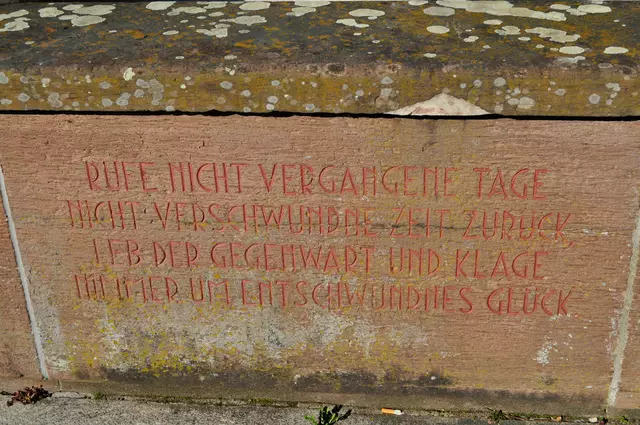 RUFE NICHT VERGANGENE TAGE
NICHT VERSCHWUNDNE ZEIT ZURÜCK,
LEB DER GEGENWART UND KLAGE
NIMMER UM ENTSCHWUNDNES GLÜCK